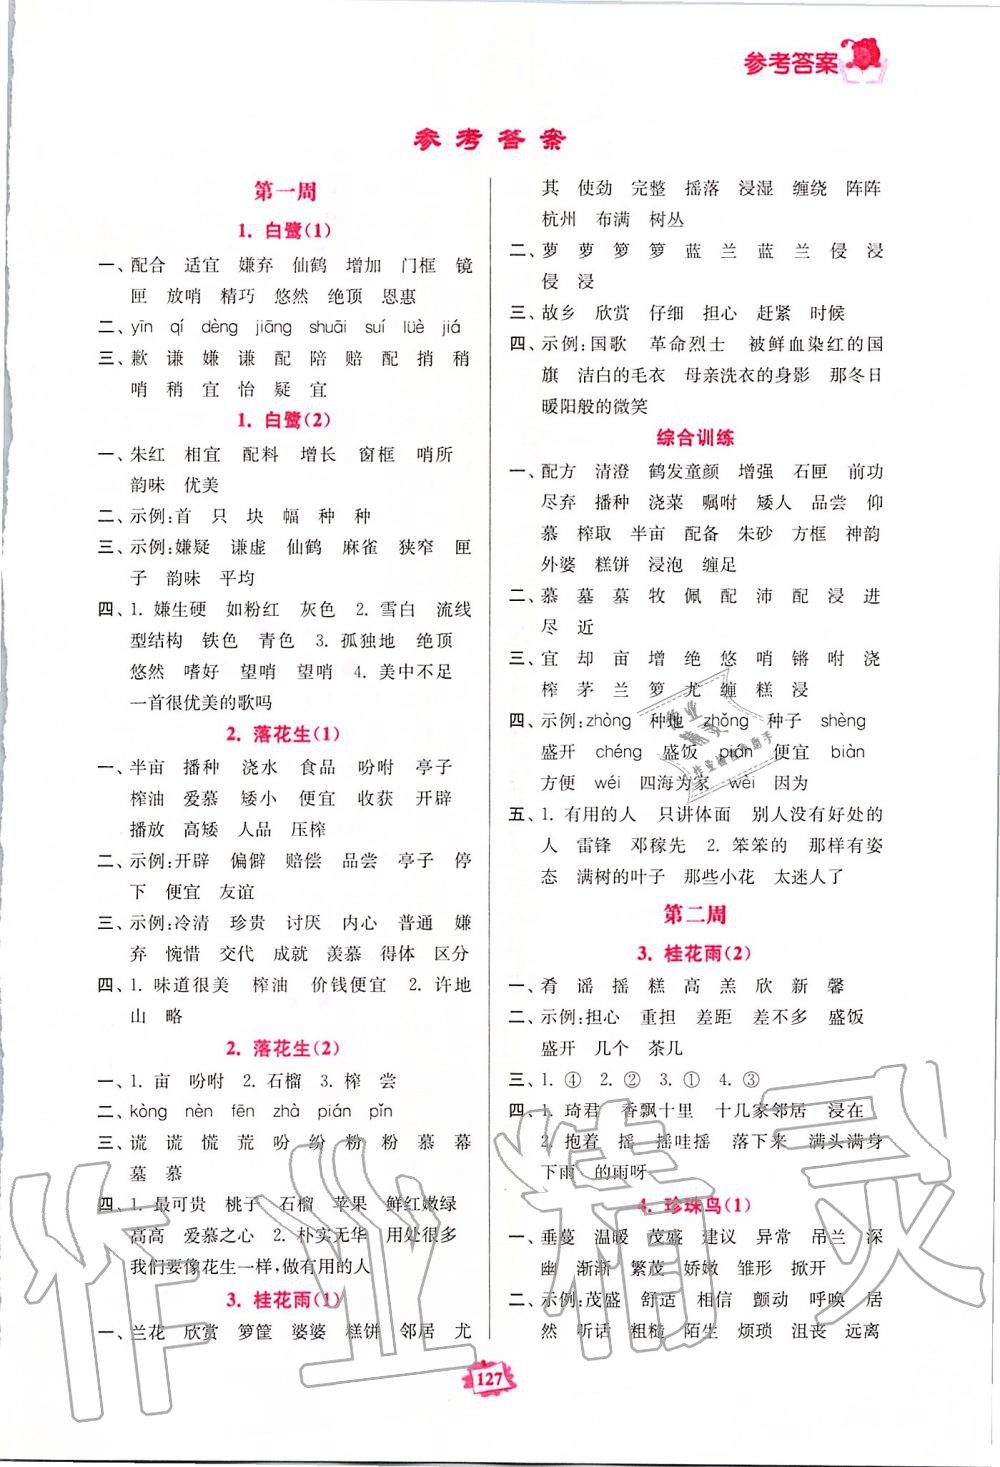 参考答案
参考答案
第一周
1. 白鹭(1)
一、配合 适宜 嫌弃 仙鹤 增加 门框 镜
匣 放哨 精巧 悠然 绝顶 恩惠
二、yīn qí dèng jiāng shuāi suí lüè jiá
三、歉 谦 嫌 谦 配 陪 赔 配 捎 稍
哨 稍 宜 怡 疑 宜
1. 白鹭(2)
一、朱红 相宜 配料 增长 窗框 哨所
韵味 优美
二、示例:首 只 块 幅 种 种
三、示例:嫌疑 谦虚 仙鹤 麻雀 狭窄 匣
子 韵味 平均
四、1. 嫌生硬 如粉红 灰色 2. 雪白 流线
型结构 铁色 青色 3. 孤独地 绝顶
悠然 嗜好 望哨 望哨 4. 美中不足
一首很优美的歌吗
2. 落花生(1)
一、半亩 播种 浇水 食品 吩咐 亭子
榨油 爱慕 矮小 便宜 收获 开辟
播放 高矮 人品 压榨
二、示例:开辟 偏僻 赔偿 品尝 亭子 停
下 便宜 友谊
三、示例:冷清 珍贵 讨厌 内心 普通 嫌
弃 惋惜 交代 成就 羡慕 得体 区分
四、1. 味道很美 榨油 价钱便宜 2. 许地
山 略
2. 落花生(2)
一、1. 亩 吩咐 2. 石榴 3. 榨 尝
二、kòng nèn fēn zhà pián pǐn
三、谎 谎 慌 荒 吩 纷 粉 粉 慕 幕
墓 慕
四、1. 最可贵 桃子 石榴 苹果 鲜红嫩绿
高高 爱慕之心 2. 朴实无华 用处很多
我们要像花生一样,做有用的人
3. 桂花雨(1)
一、兰花 欣赏 箩筐 婆婆 糕饼 邻居 尤
其 使劲 完整 摇落 浸湿 缠绕 阵阵
杭州 布满 树丛
二、萝 萝 箩 箩 蓝 兰 蓝 兰 侵 浸
侵 浸
三、故乡 欣赏 仔细 担心 赶紧 时候
四、示例:国歌 革命烈士 被鲜血染红的国
旗 洁白的毛衣 母亲洗衣的身影 那冬日
暖阳般的微笑
综合训练
一、配方 清澄 鹤发童颜 增强 石匣 前功
尽弃 播种 浇菜 嘱咐 矮人 品尝 仰
慕 榨取 半亩 配备 朱砂 方框 神韵
外婆 糕饼 浸泡 缠足
二、慕 墓 墓 牧 佩 配 沛 配 浸 进
尽 近
三、宜 却 亩 增 绝 悠 哨 锵 咐 浇
榨 茅 兰 箩 尤 缠 糕 浸
四、示例:zhòng 种地 zhǒng 种子 shèng
盛开 chéng 盛饭 pián 便宜 biàn
方便 wéi 四海为家 wèi 因为
五、1. 有用的人 只讲体面 别人没有好处的
人 雷锋 邓稼先 2. 笨笨的 那样有姿
态 满树的叶子 那些小花 太迷人了
第二周
3. 桂花雨(2)
一、肴 谣 摇 糕 高 羔 欣 新 馨
二、示例:担心 重担 差距 差不多 盛饭
盛开 几个 茶几
三、1. ④ 2. ② 3. ① 4. ③
四、1. 琦君 香飘十里 十几家邻居 浸在
2. 抱着 摇 摇哇摇 落下来 满头满身
下雨 的雨呀
4. 珍珠鸟(1)
一、垂蔓 温暖 茂盛 建议 异常 吊兰 深
幽 渐渐 繁茂 娇嫩 雏形 掀开
二、示例:茂盛 舒适 相信 颤动 呼唤 居
然 听话 粗糙 陌生 烦琐 沮丧 远离
127
作业精灵
作业精灵
作业检查小助手